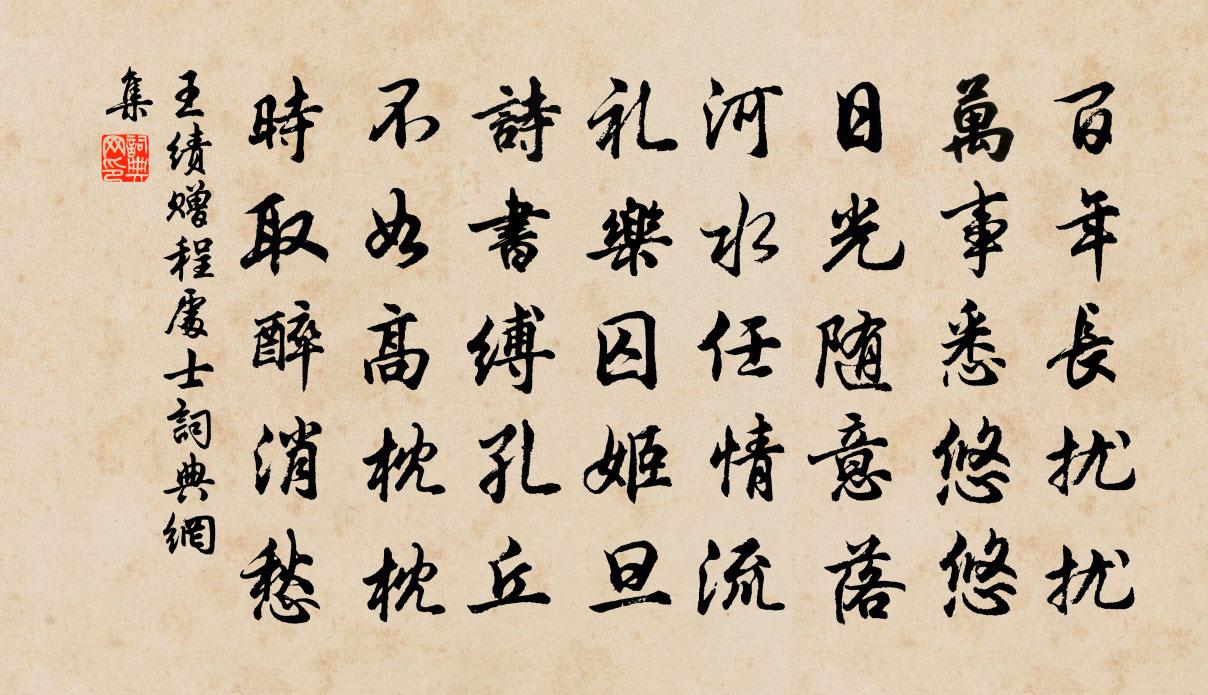 百年長扰扰
萬事悉悠悠
日光随意落
河水任情流
礼樂囚姬旦
詩書縛孔丘
不如高枕枕
時取醉消愁
王績赠程處士詞典網
集
詞典网印